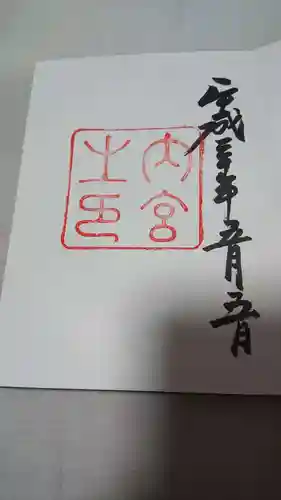 平成三十年五月五日
内宮
之印